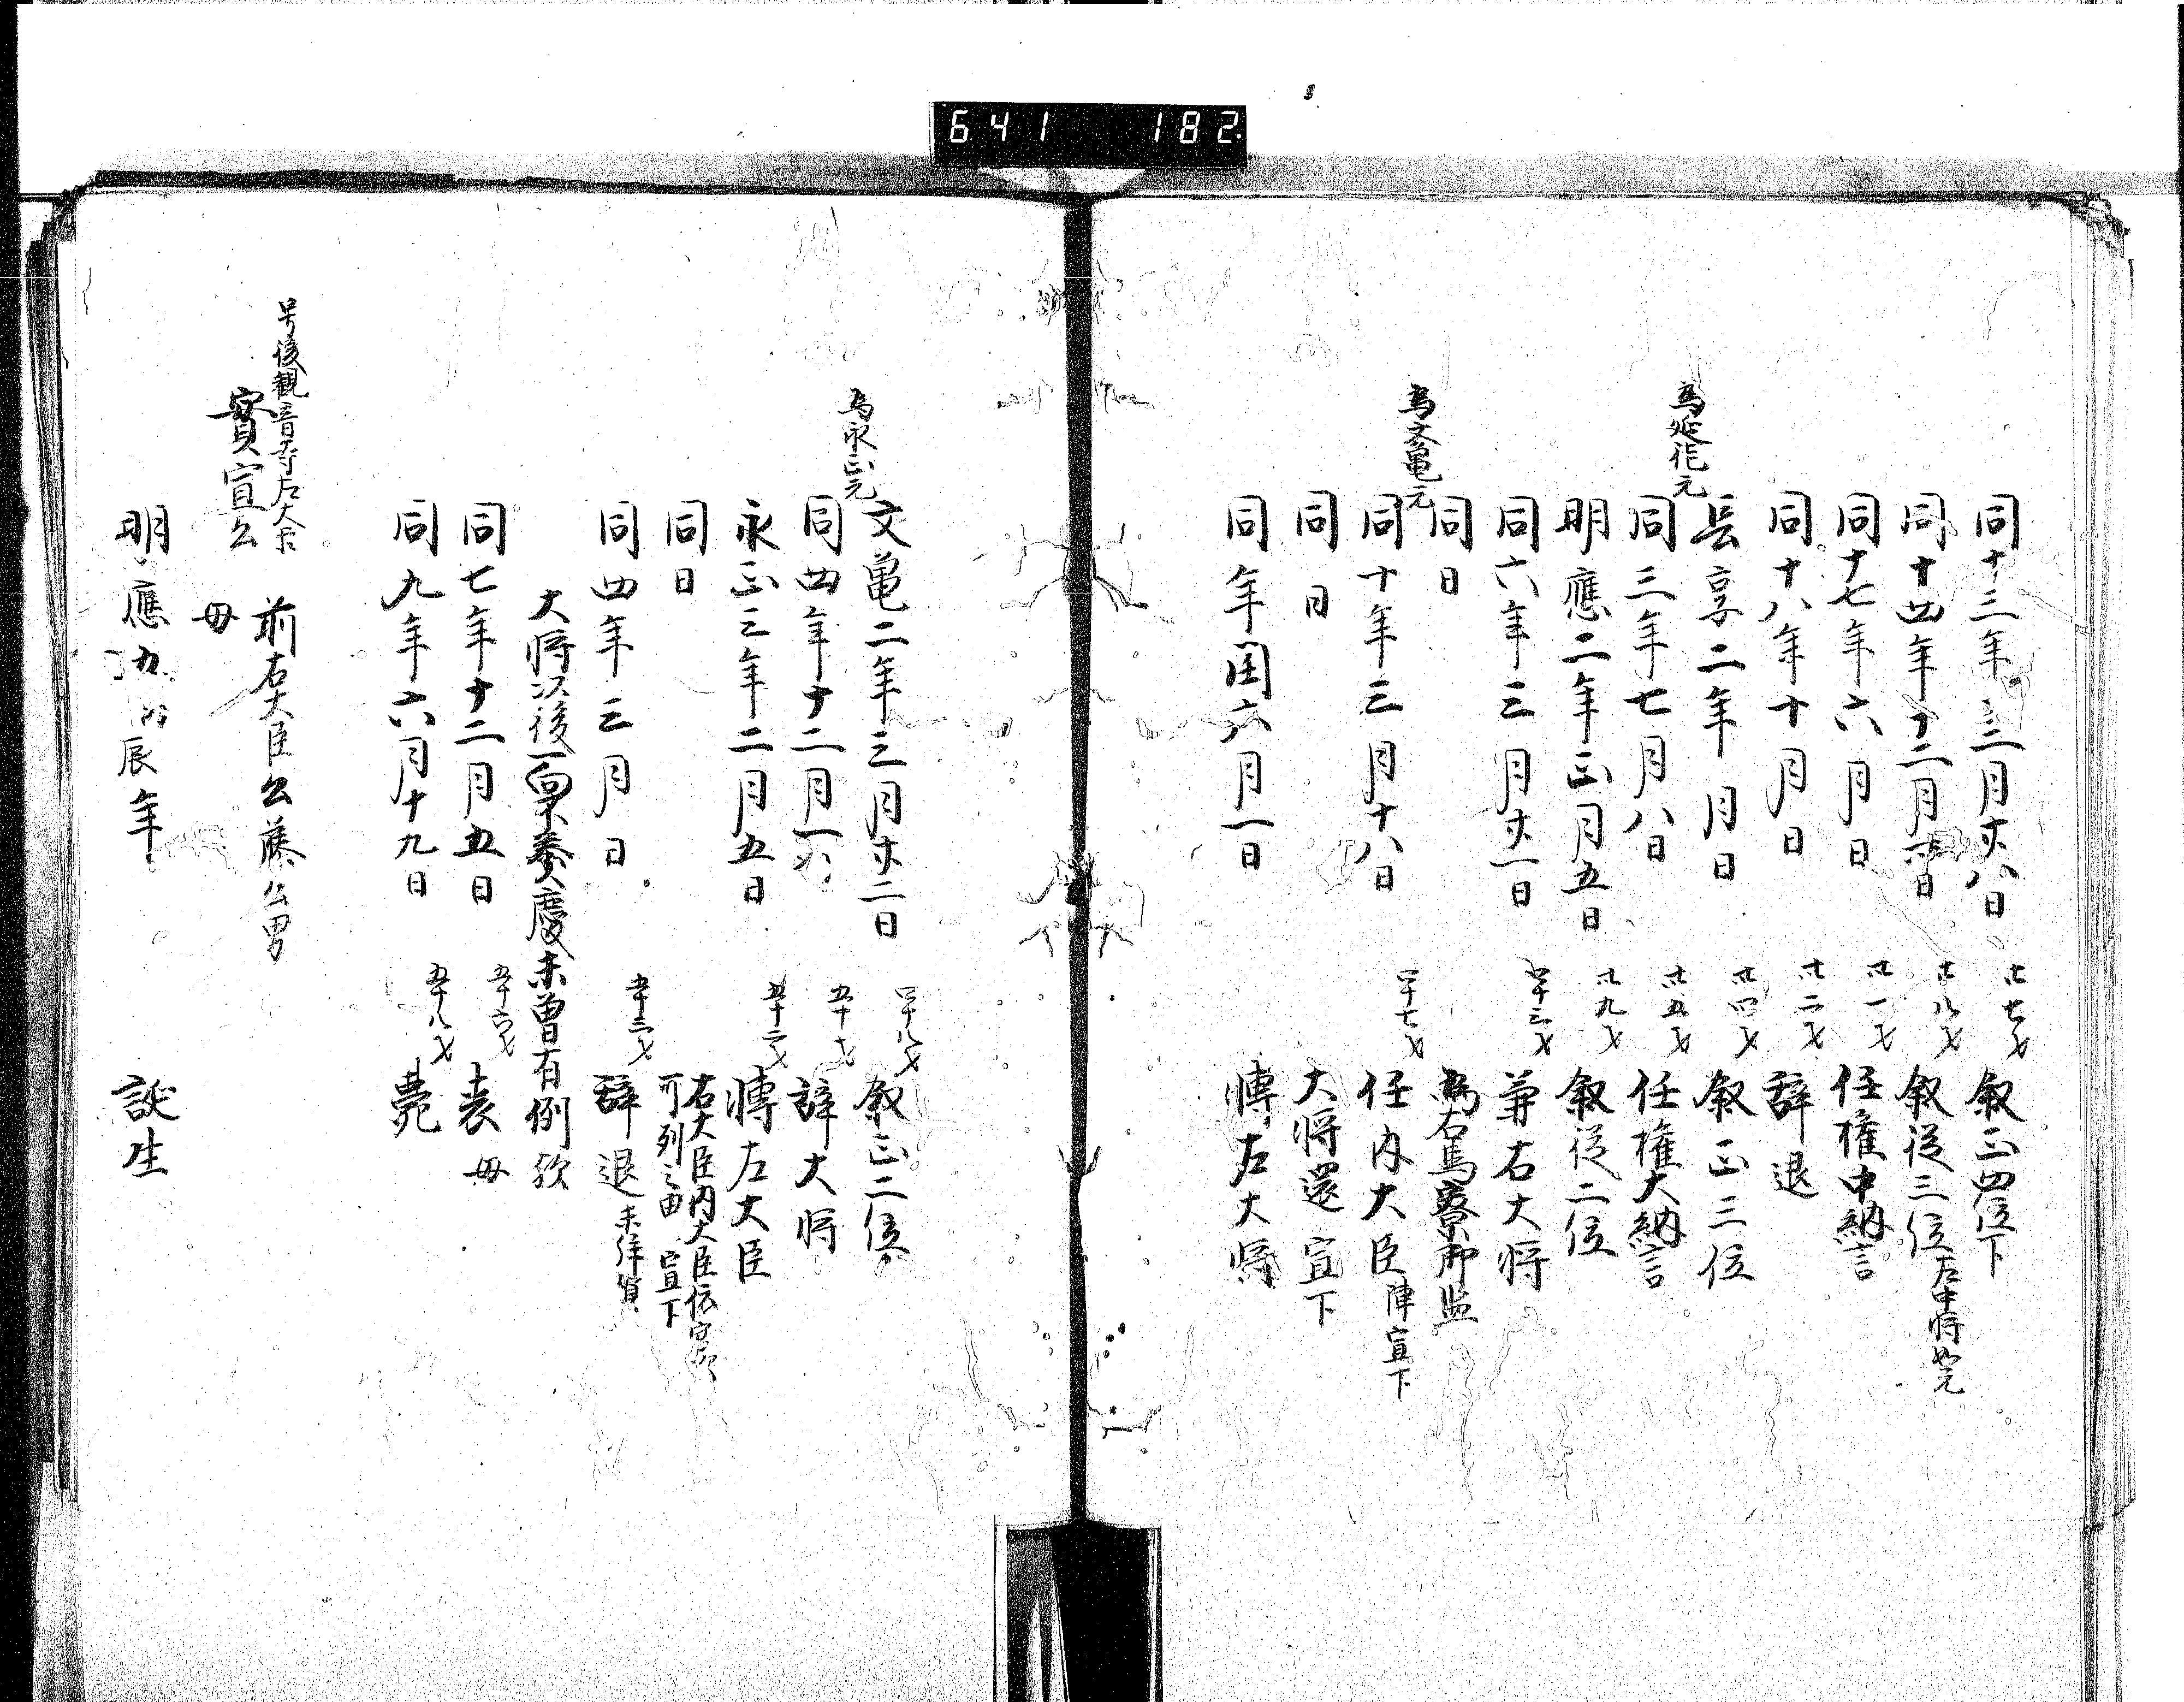 641 182
同十三年三月廿八日 廿七才 叙正四位下
同十四年十二月日 廿八才 叙従三位 左中将如元
同十七年六月日 卅一才 任権中納言
同十八年十月日 卅二才 辞退
為延徳元
長享二年月日 卅四才 叙正三位
同三年七月八日 卅五才 任権大納言
明應二年正月五日 卅九才 叙従二位
同六年三月廿一日 四十三才 兼右大将
同日 為右馬寮御監
為文亀元
同十年三月十八日 四十七才 任内大臣 陣宣下
同日 大将還宣下
同年閏六月一日 轉左大将
文亀二年三月廿二日 四十八才 叙正二位
為永正元
同四年十二月 五十才 辞大将
永正三年二月五日 五十二才 轉左大臣
同日 右大臣内大臣
可列之由宣下
同四年三月日 五十三才 辞退 未拝賀
大将以後一向不奏慶未曾有例歟
同七年十二月五日 五十六才 喪母
同九年六月十九日 五十八才 薨
号後観音寺左大臣
實宣公 前右大臣公藤公男
母
明應九辰年 誕生